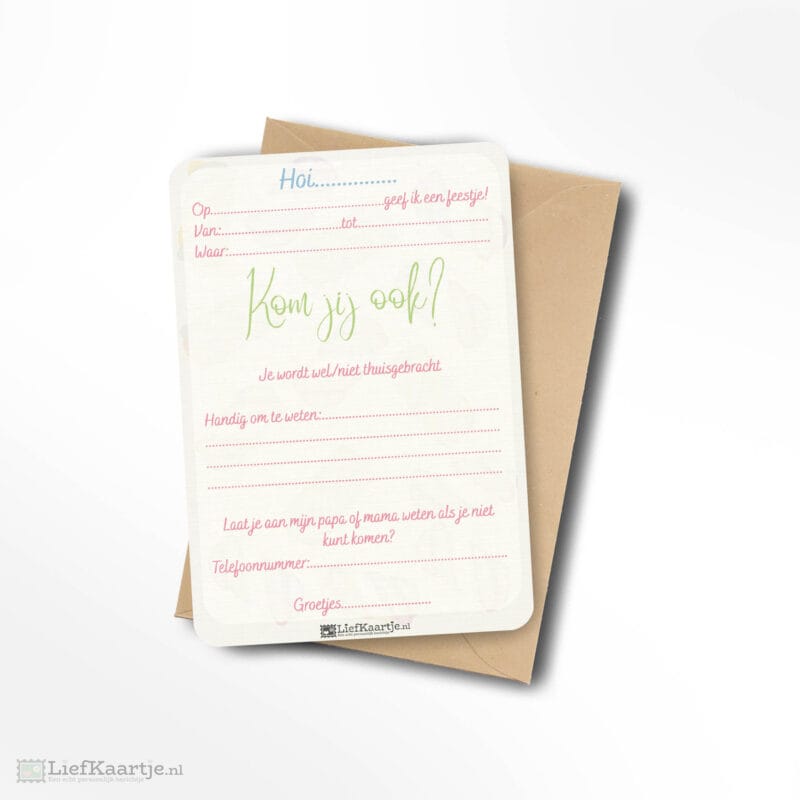 Hoi...............
Op.......................................geef ik een feestje!
Van:...........................tot..............................
Waar:...........................................................
Kom jij ook?
Je wordt wel/niet thuisgebracht
Handig om te weten:........................................
...................................................................
...................................................................
...................................................................
Laat je aan mijn papa of mama weten als je niet
kunt komen?
Telefoonnummer:.............................................
Groetjes....................
LiefKaartje.nl
Een echt persoonlijk berichtje
LiefKaartje.nl
Een echt persoonlijk berichtje